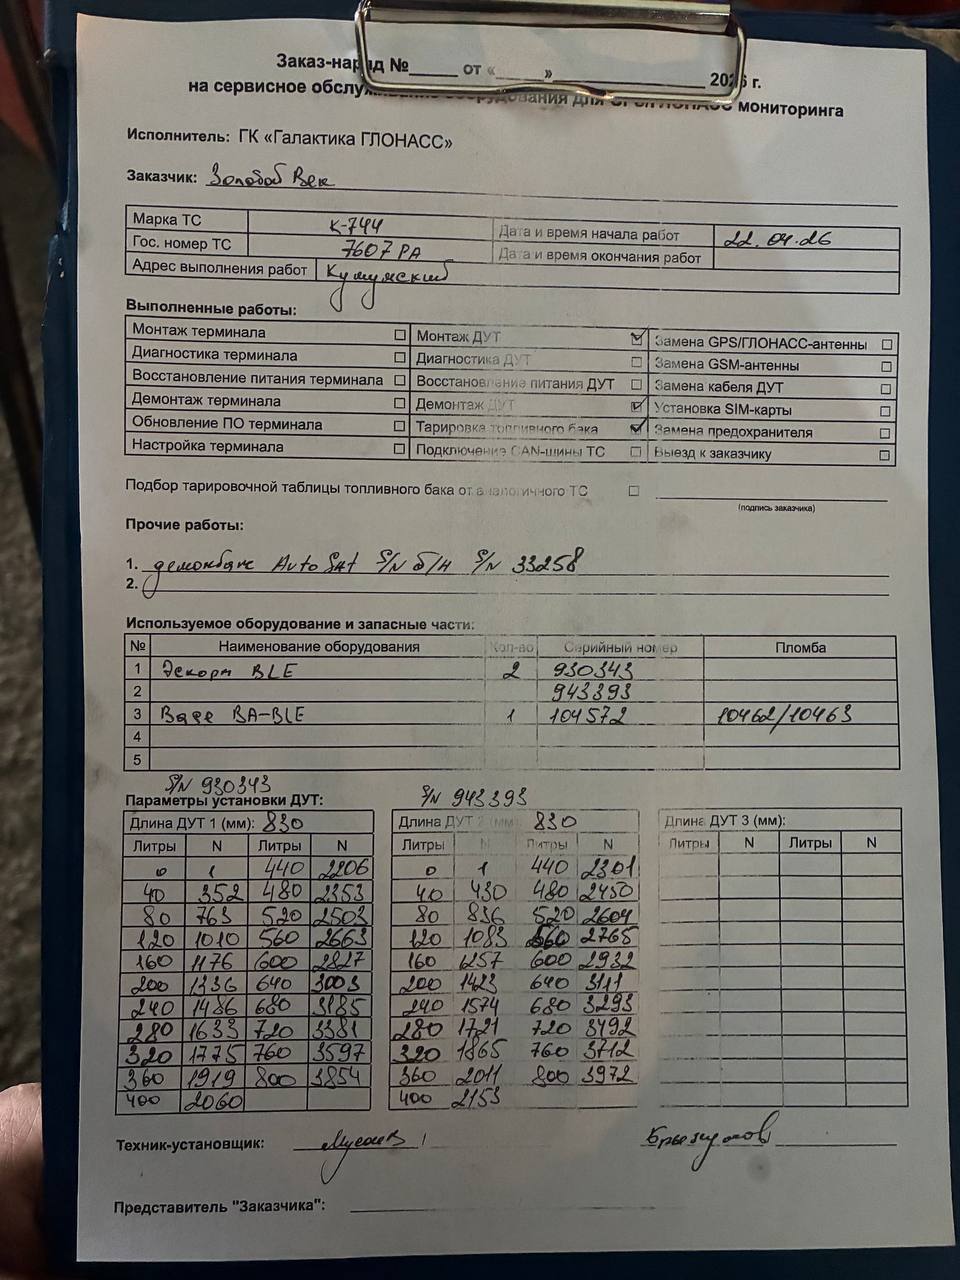 Заказ-наряд №_____ от «_____»______________ 2026 г.
на сервисное обслуживание оборудования для GPS/ГЛОНАСС мониторинга
Исполнитель: ГК «Галактика ГЛОНАСС»
Заказчик: Золотой Век
Марка ТС К-744 Дата и время начала работ 22.04.26
Гос. номер ТС 7607 РА Дата и время окончания работ
Адрес выполнения работ
Выполненные работы:
Монтаж терминала ☐ Монтаж ДУТ ☑ Замена GPS/ГЛОНАСС-антенны ☐
Диагностика терминала ☐ Диагностика ДУТ ☐ Замена GSM-антенны ☐
Восстановление питания терминала ☐ Восстановление питания ДУТ ☐ Замена кабеля ДУТ ☐
Демонтаж терминала ☐ Демонтаж ДУТ ☑ Установка SIM-карты ☐
Обновление ПО терминала ☐ Тарировка топливного бака ☑ Замена предохранителя ☐
Настройка терминала ☐ Подключение CAN-шины ТС ☐ Выезд к заказчику ☐
Подбор тарировочной таблицы топливного бака от аналогичного ТС ☐
(подпись заказчика)
Прочие работы:
1. демонтаж AutoSat S/N б/н S/N 33258
2.
Используемое оборудование и запасные части:
№ Наименование оборудования Кол-во Серийный номер Пломба
1 Эскорт BLE 2 930343
2 943393
3 BA-BLE 1 104572 10462/10463
4
5
S/N 930343 S/N 943393
Параметры установки ДУТ:
Длина ДУТ 1 (мм): 830 Длина ДУТ 2 (мм): 830 Длина ДУТ 3 (мм):
Литры N Литры N Литры N Литры N Литры N Литры N
0 1 440 2206 0 1 440 2301
40 352 480 2353 40 430 480 2450
80 763 520 2503 80 836 520 2604
120 1010 560 2663 120 1083 560 2765
160 1176 600 2827 160 1257 600 2932
200 1336 640 3003 200 1423 640 3111
240 1486 680 3185 240 1574 680 3293
280 1633 720 3381 280 1721 720 3492
320 1775 760 3597 320 1865 760 3712
360 1919 800 3854 360 2011 800 3972
400 2060 400 2153
Техник-установщик: Мусаев
Представитель "Заказчика":